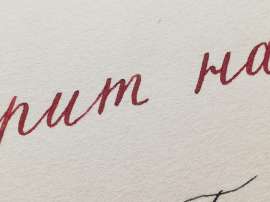 рит на